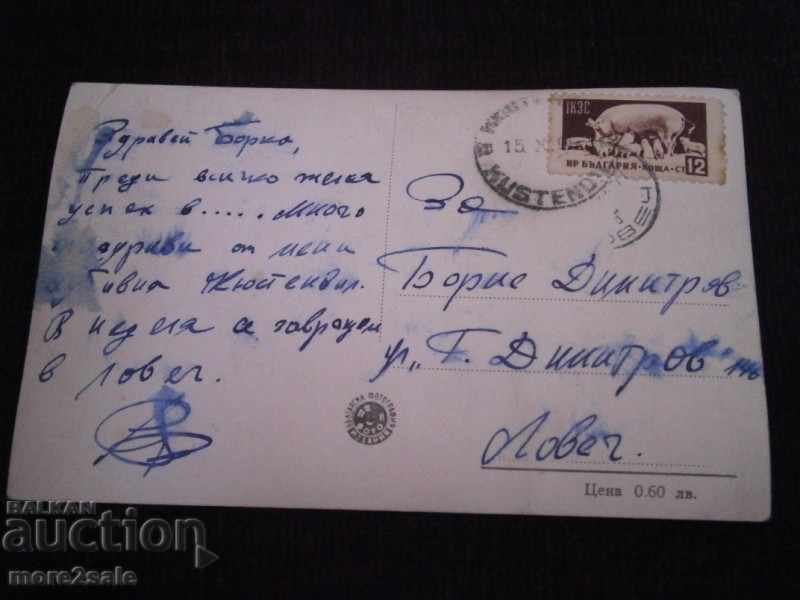 Здравей Борка,
Преди всичко желая
успех в ..... Много
здрави от мене
Кюстендил.
В неделя се завръщам
в Ловеч.
За
Борис Димитров
ул. „Г. Димитров" 146
Ловеч.
Цена 0.60 лв.
ТКЗС
НР БЪЛГАРИЯ · ПОЩА · СТ 12
15. X
KUSTEND
BALKAN
auction
more2sale